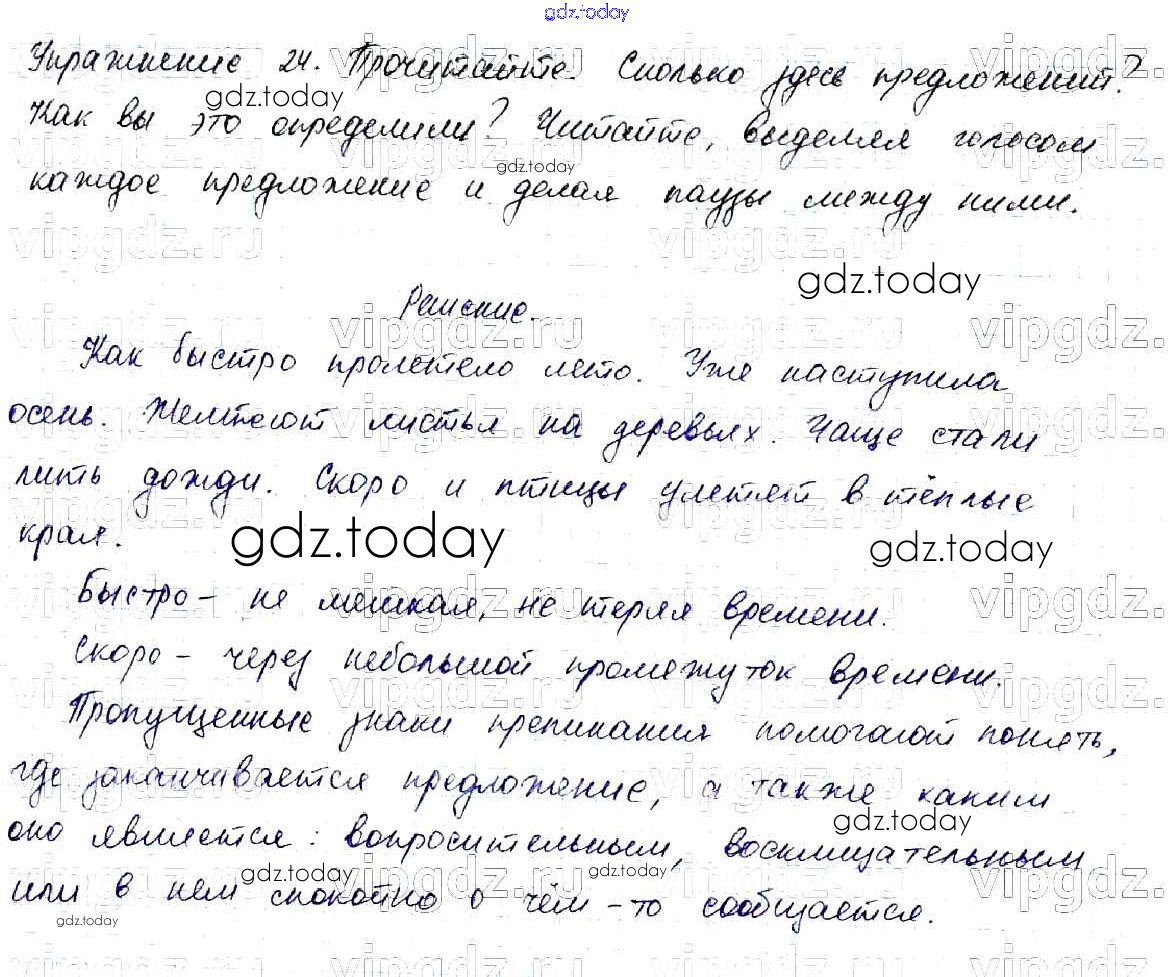 gdz.today
Упражнение 24. Прочитайте. Сколько здесь предложений?
gdz.today
Как вы это определили? Читайте, выделяя голосом
gdz.today
каждое предложение и делая паузы между ними.
vipgdz.ru
gdz.today
Решение.
vipgdz.ru vipgdz.ru vipgdz.
Как быстро пролетело лето. Уже наступила
осень. Желтеют листья на деревьях. Чаще стали
лить дожди. Скоро и птицы улетят в тёплые
края.
gdz.today gdz.today
Быстро – не мешкая, не теряя времени.
Скоро – через небольшой промежуток времени.
Пропущенные знаки препинания помогают понять,
где заканчивается предложение, а также каким
gdz.today
оно является: вопросительным, восклицательным
gdz.today gdz.today
или в нем спокойно о чём-то сообщается.
gdz.today
vipgdz.ru vipgdz.ru vipgdz.ru vipgdz.